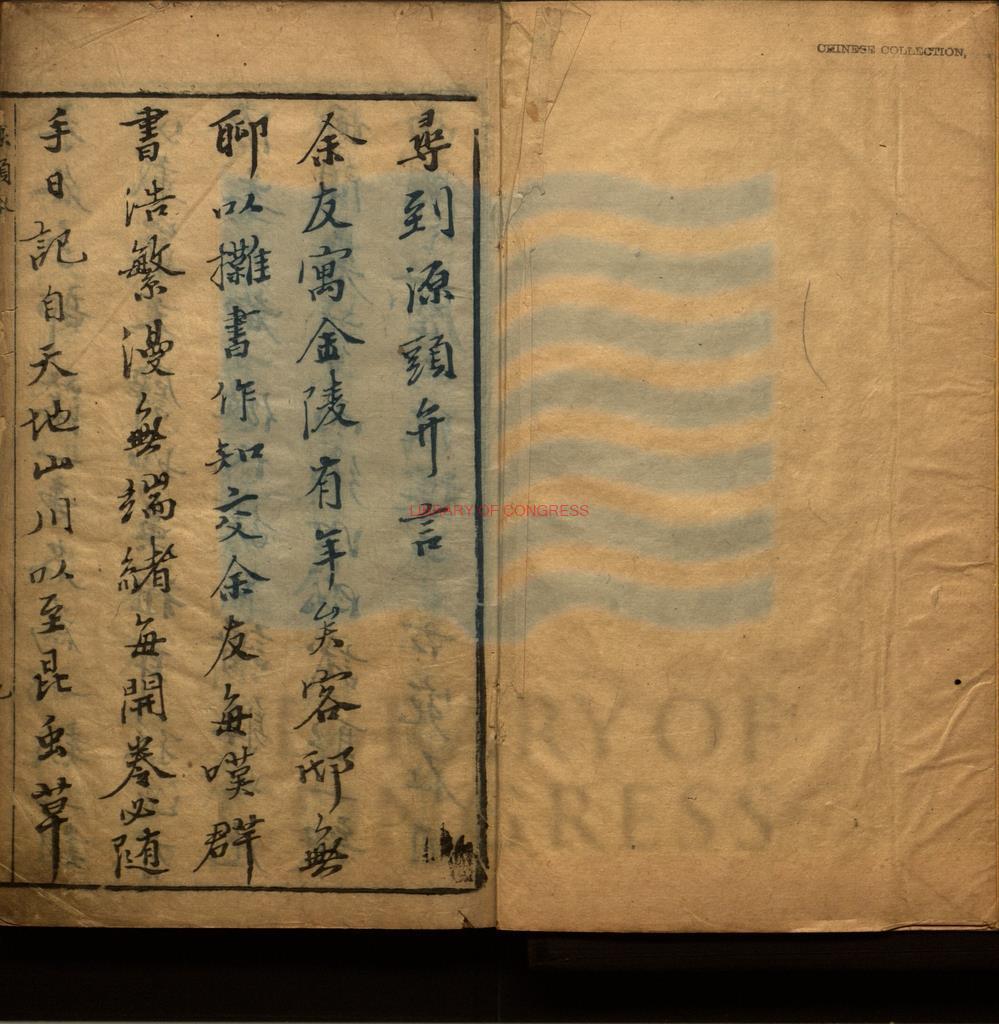 CHINESE COLLECTION,
尋到源頭弁言
余友寓金陵有年矣客邸無
聊以攤書作知交余友每嘆群
書浩繁漫無端緒每開卷必随
手日記自天地山川以至昆虫草
LIBRARY OF CONGRESS
LIBRARY OF
CONGRESS